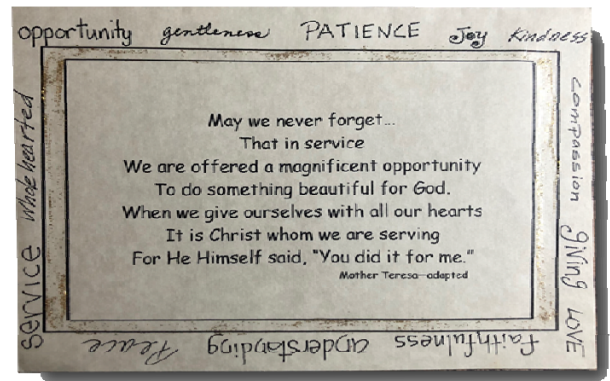 opportunity gentleness PATIENCE Joy Kindness
compassion giving LOVE
Faithfulness understanding Peace
service Whole hearted
May we never forget...
That in service
We are offered a magnificent opportunity
To do something beautiful for God.
When we give ourselves with all our hearts
It is Christ whom we are serving
For He Himself said, "You did it for me."
Mother Teresa-adapted